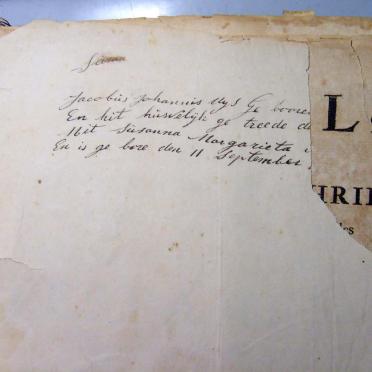 Jacobus Johannis Uys Ge booren
En het huwelijk ge treede d
Mit Susanna Margarieta
En is ge bore den 11 September
L
HRI
les